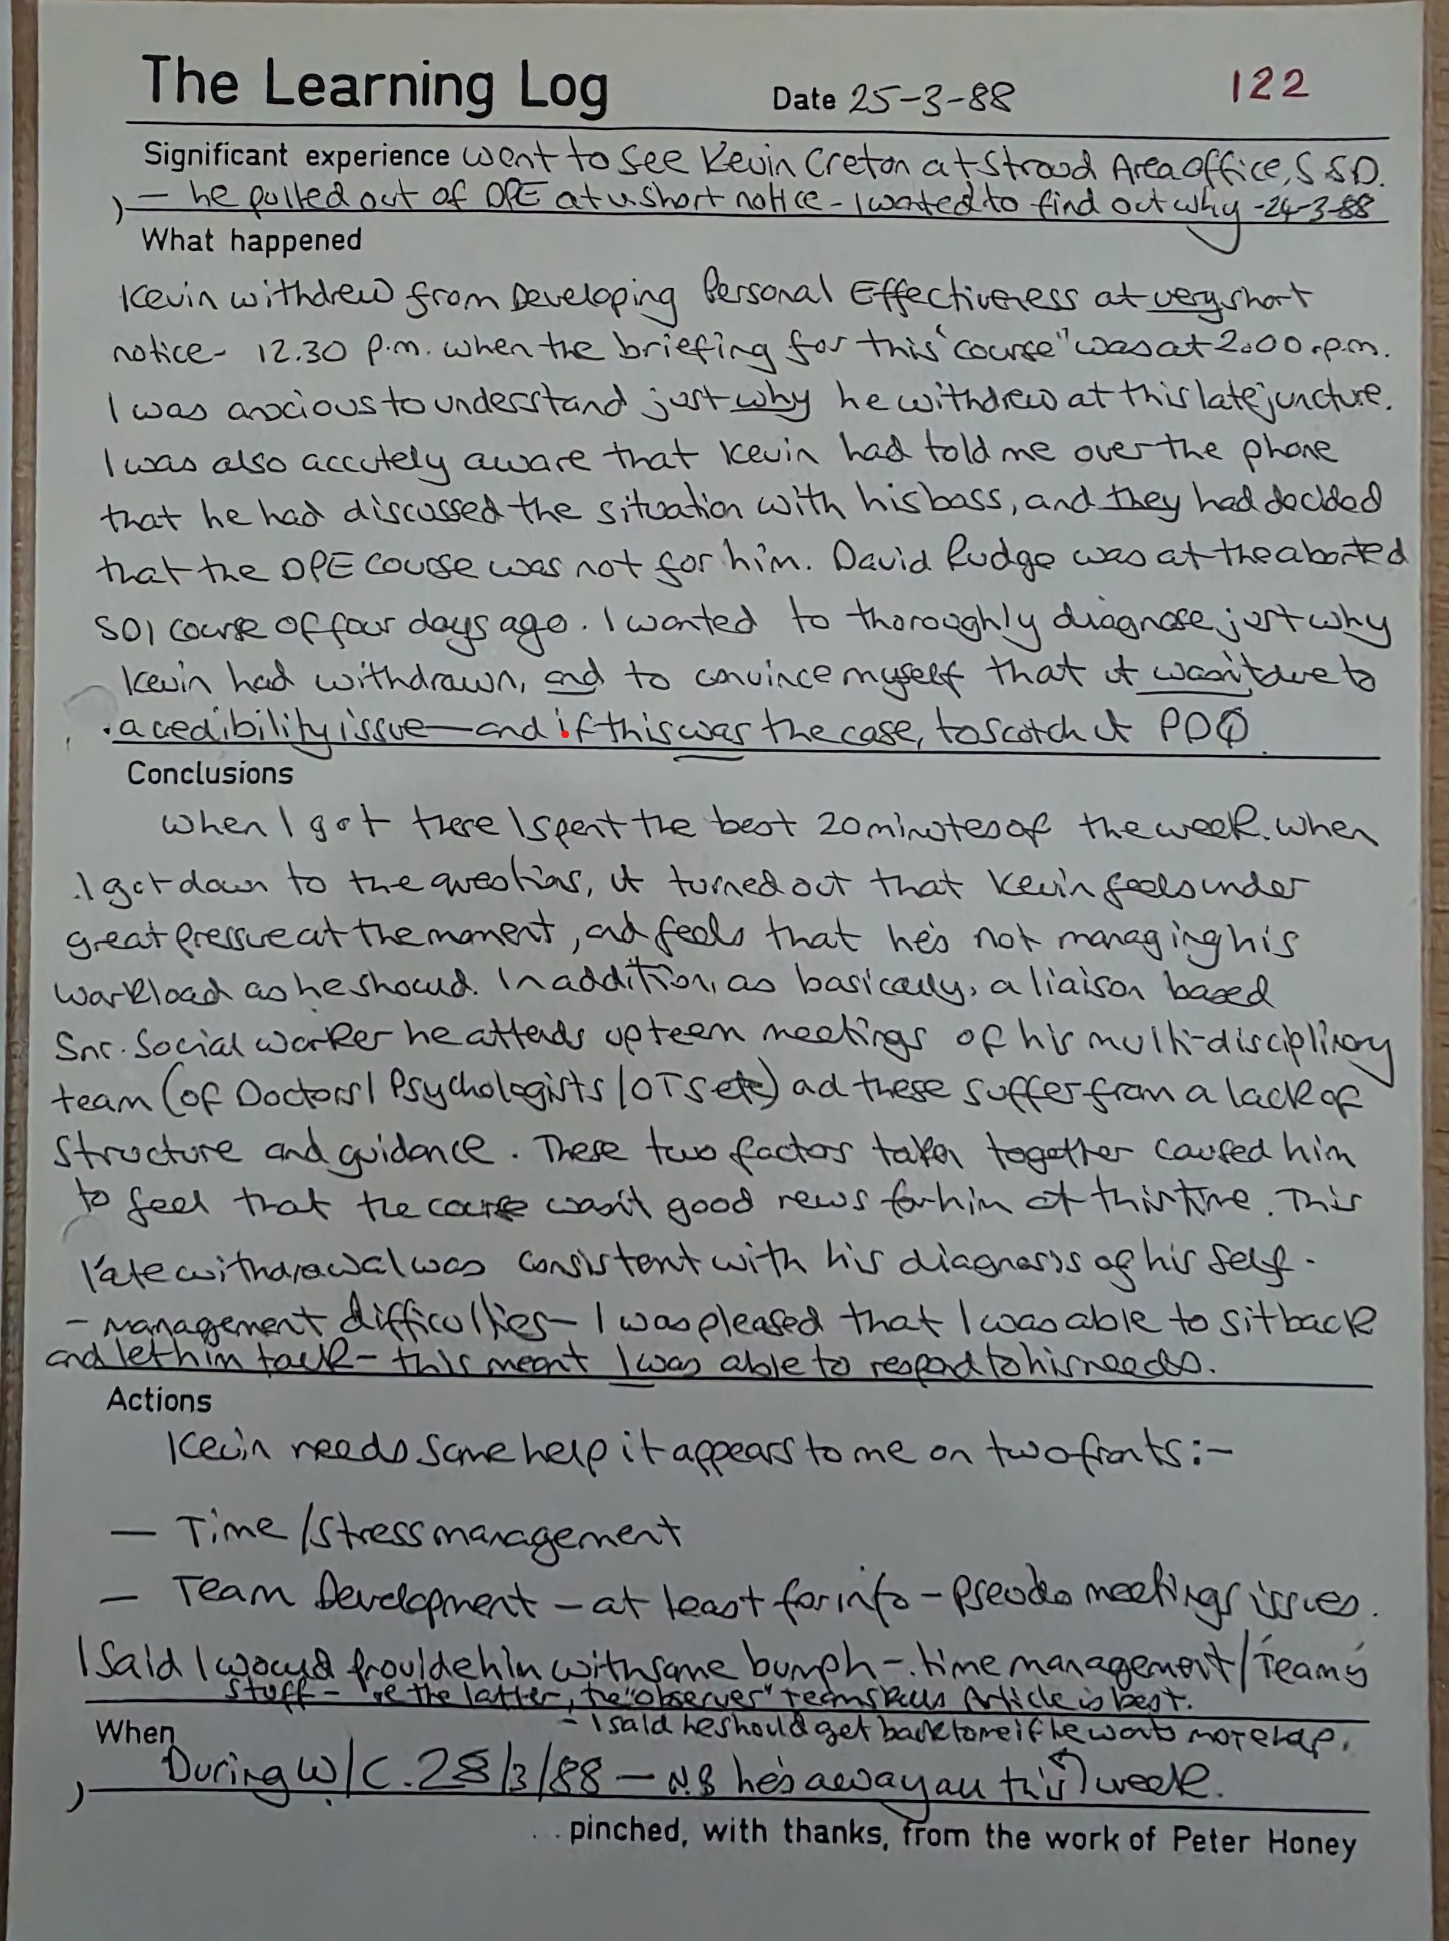 The Learning Log Date 25-3-88 122
Significant experience went to see Kevin Creton at Strood Area Office, SSD.
— he pulled out of DPE at v. short notice - I wanted to find out why - 24-3-88
What happened
Kevin withdrew from Developing Personal Effectiveness at very short
notice - 12.30 p.m. when the briefing for this "course" was at 2.00.p.m.
I was anxious to understand just why he withdrew at this late juncture.
I was also accutely aware that Kevin had told me over the phone
that he had discussed the situation with his boss, and they had decided
that the DPE course was not for him. David Rudge was at the aborted
SO1 course of four days ago. I wanted to thoroughly diagnose just why
Kevin had withdrawn, and to convince myself that it wasn't due to
a cedibility issue — and if this was the case, to scotch it PDQ.
Conclusions
When I got there I spent the best 20 minutes of the week. When
I got down to the questions, it turned out that Kevin feels under
great pressure at the moment, and feels that he's not managing his
workload as he should. In addition, as basically, a liaison based
Snr. Social Worker he attends upteen meetings of his multi-disciplinary
team (of Doctors / Psychologists / OTs etc) ad these suffer from a lack of
structure and guidance. These two factors taken together caused him
to feel that the course wasn't good news for him at this time. This
late withdrawal was consistent with his diagnosis of his self-
- management difficulties - I was pleased that I was able to sit back
and let him talk - this meant I was able to respond to his needs.
Actions
Kevin needs some help it appears to me on two fronts:-
— Time / Stress management
— Team Development - at least for info - pseudo meetings issues.
I said I would provide him with some bumph - time management / Teams
stuff - re the latter, the "observer" Teamskills Article is best.
- I said he should get back to me if he wants more help.
When
During W/C. 28/3/88 — N.B he's away all this week.
pinched, with thanks, from the work of Peter Honey